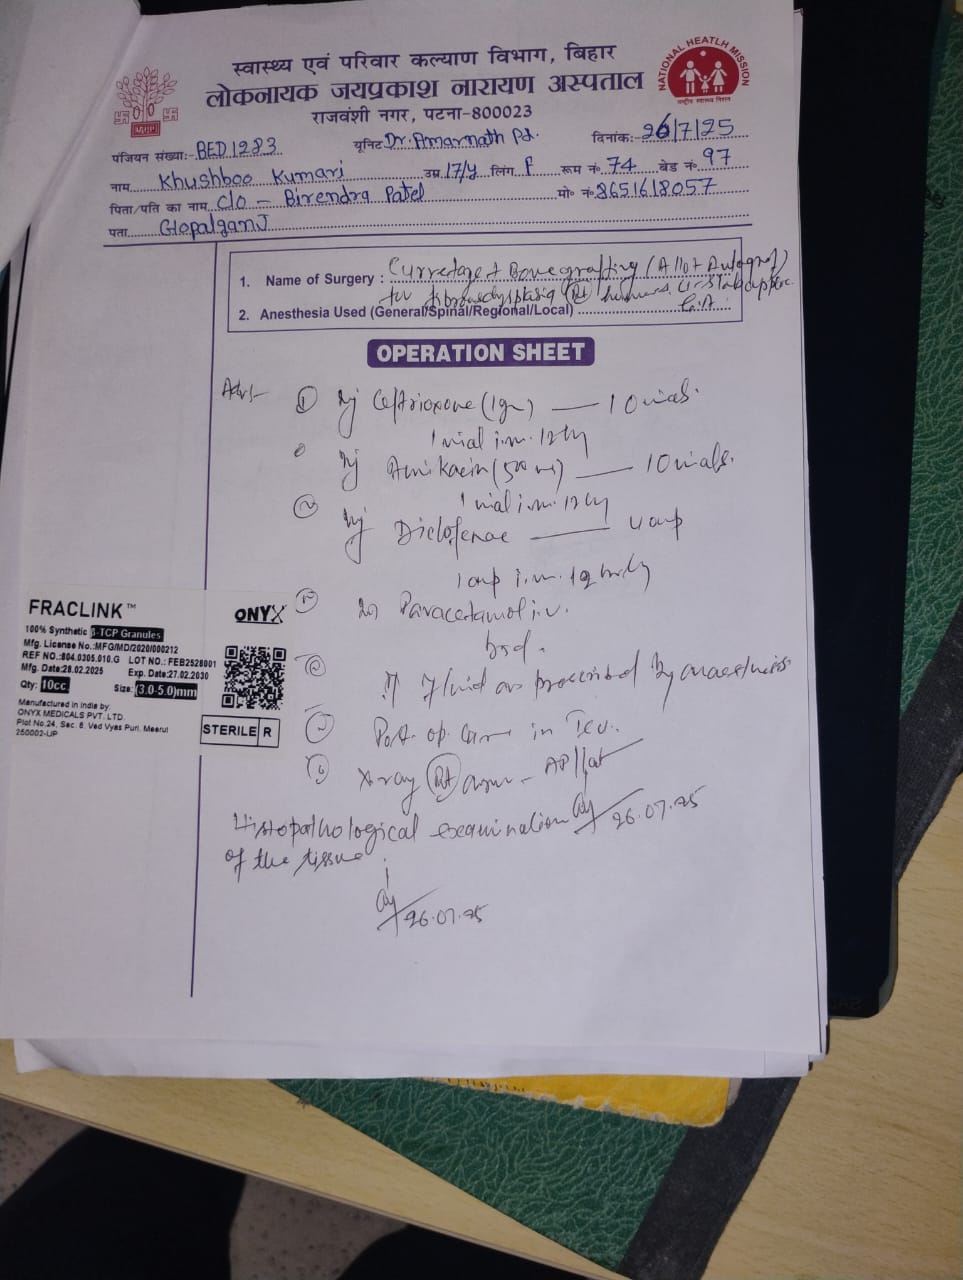 स्वास्थ्य एवं परिवार कल्याण विभाग, बिहार
लोकनायक जयप्रकाश नारायण अस्पताल
राजवंशी नगर, पटना-800023
NATIONAL HEATLH MISSION
राष्ट्रीय स्वास्थ्य मिशन
पंजियन संख्या:- BED1283 यूनिट Dr. Amarnath Pd. दिनांक:- 26/7/25
नाम Khushboo Kumari उम्र 17/y लिंग F रूम नं. 74 बेड नं. 97
पिता/पति का नाम C/O - Birendra Patel मो० नं. 8651618057
पता Gopalganj
1. Name of Surgery : Curretage + Bonegrafting (Allo + Autograf)
for fibrousdysplasia (Rt) humerus
2. Anesthesia Used (General/Spinal/Regional/Local) G.A.
OPERATION SHEET
Adv-
① Inj Ceftrioxone (1gm) — 10 vials.
1 vial i.m. 12hly
Inj Amikacin (500 mg) — 10 vials.
1 vial i.m. 12hly
Inj Diclofenac — 4 amp
1 amp i.m. 12 hrly
Inj Paracetamol i.v.
Fluid as prescribed by
Post. op. Care in
X-ray (Rt) arm - AP/lat
26.07.25
Histopathological examination
of the tissue
26.07.25
FRACLINK™
ONYX
100% Synthetic β-TCP Granules
Mfg. License No.:MFG/MD/2020/000212
REF NO.:804.0305.010.G LOT NO.: FEB2528001
Mfg. Date:28.02.2025 Exp. Date:27.02.2030
Qty: 10cc. Size: (3.0-5.0)mm
Manufactured in India by:
ONYX MEDICALS PVT. LTD.
Plot No.24, Sec. 6, Ved Vyas Puri, Meerut
250002-UP
STERILE R